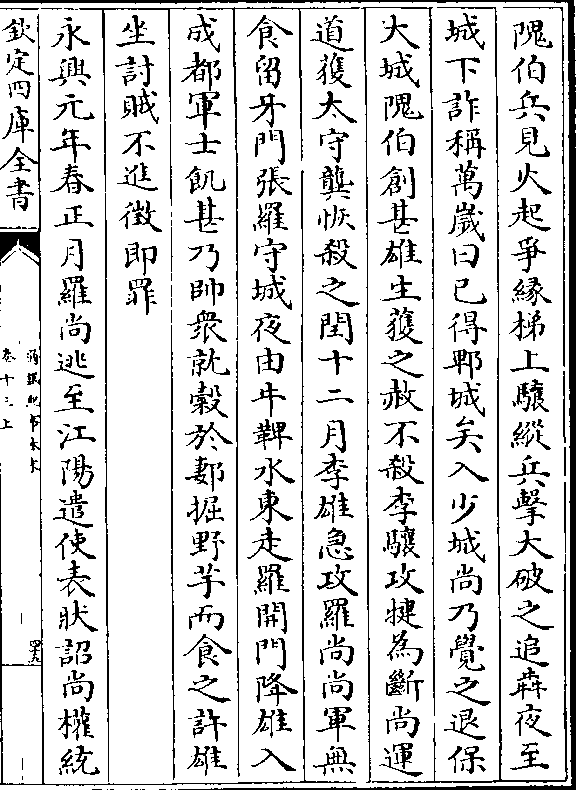 隗伯兵見火起爭緣梯上驤縱兵擊大破之追犇夜至
城下詐稱萬嵗曰已得郫城矣入少城尚乃覺之退保
大城隗伯創甚雄生獲之赦不殺李驤攻犍為斷尚運
道獲太守龔恢殺之閏十二月李雄急攻羅尚尚軍無
食留牙門張羅守城夜由牛鞞水東走羅開門降雄入
成都軍士飢甚乃帥衆就穀於郪掘野芋而食之許雄
坐討賊不進徵即罪
永興元年春正月羅尚逃至江陽遣使表狀詔尚權統
欽定四庫全書
卷十三上
四十九